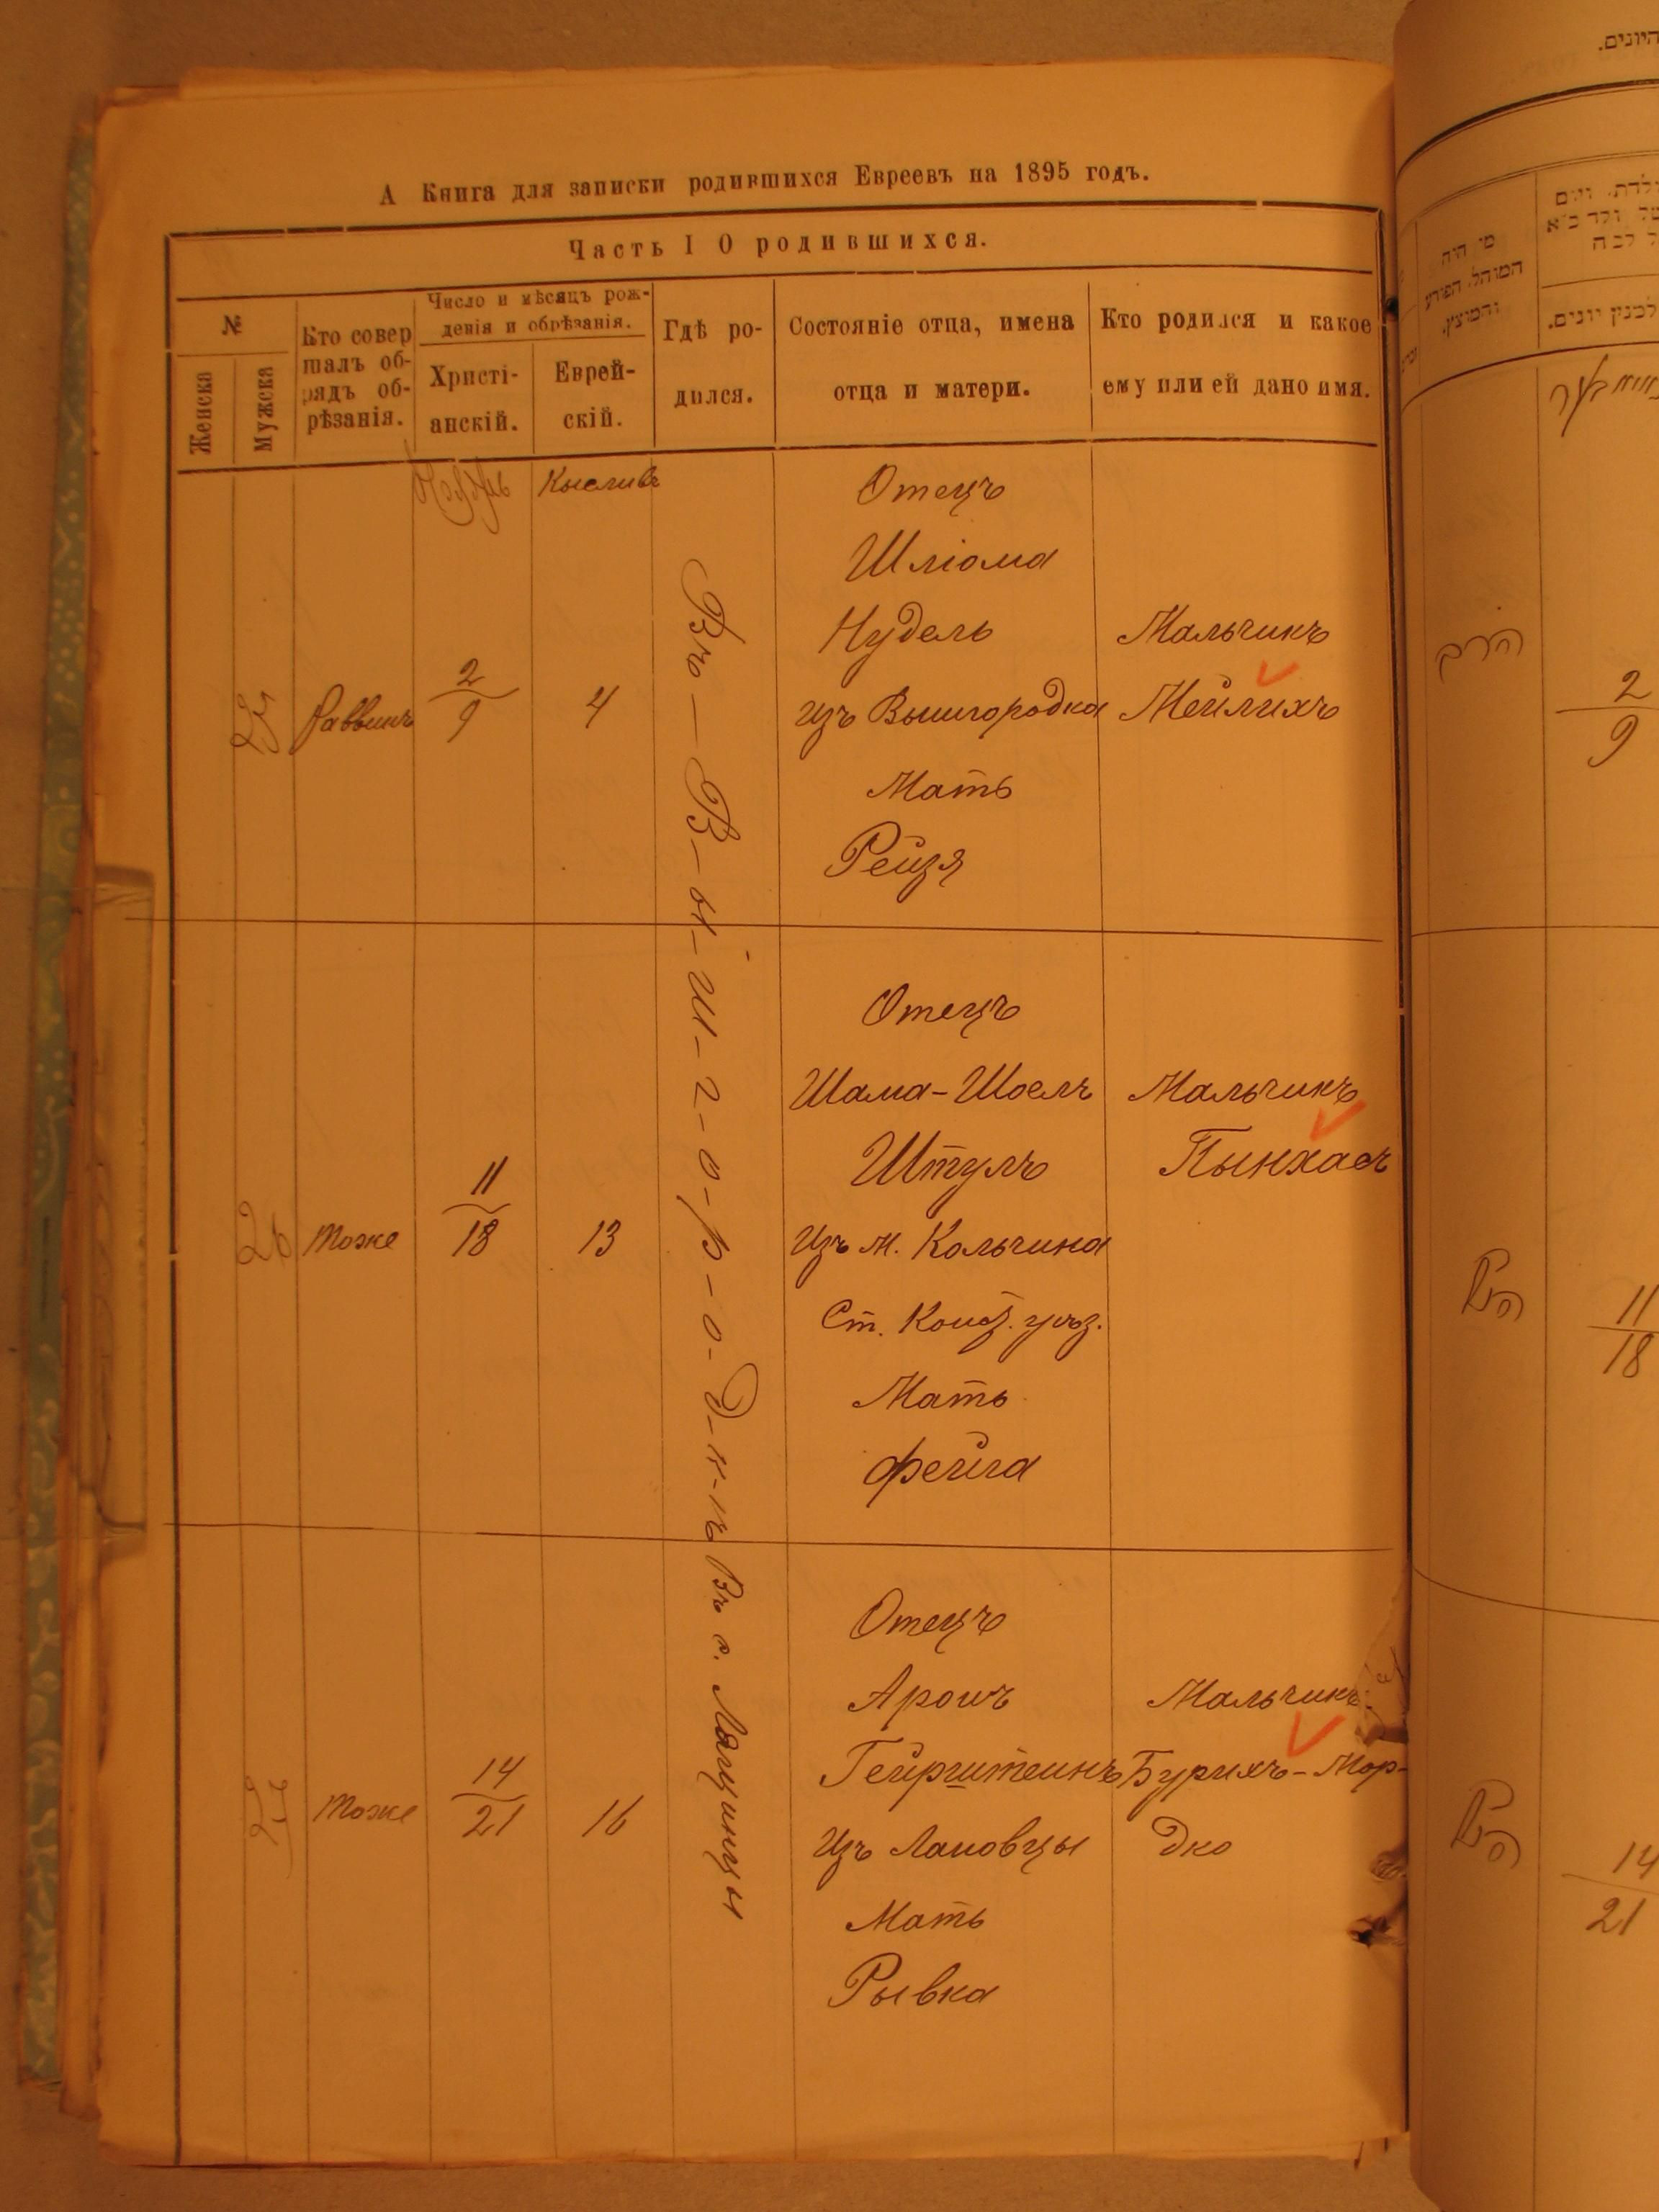 А Книга для записки родившихся Евреевъ на 1895 годъ.
Часть I О родившихся.
№
Женска
Мужска
Кто совер
шалъ об-
рядъ об-
рѣзанія.
Число и мѣсяцъ рож-
денія и обрѣзанія.
Христі-
анскій.
Еврей-
скій.
Гдѣ ро-
дился.
Состояніе отца, имена
отца и матери.
Кто родился и какое
ему или ей дано имя.
Кысливъ
Раввинъ
2
9
4
Въ - В-ы-ш-г-о-р-о-д-к-ѣ
Отецъ
Шліома
Нудель
изъ Вышгородка
Мать
Рейзя
Мальчикъ
Мейлихъ
26
тоже
11
18
13
Отецъ
Шама-Шоелъ
Штулъ
Изъ м. Кольчина
Ст. Конст. уѣз.
Мать
Фейга
Мальчикъ
Пынхасъ
тоже
14
21
16
Въ с.
Отецъ
Аронъ
Гейрштеинъ
Изъ Лановцы
Мать
Рывка
Мальчикъ
Бурихъ-Мор-
дко
היונים.
מי היה
המוהל הפורע
והמוצץ.
למנין יונים.
הרב
2
9
11
18
14
21